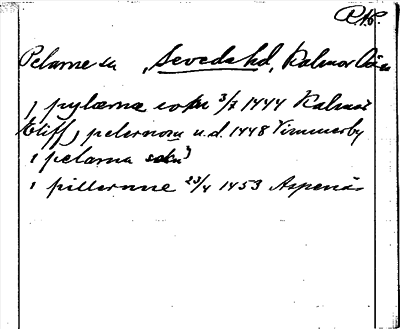 R.A.P.
Pelarne sn Sevede hd, Kalmar län
i pylærnæ sokn 3/7 1444 Kalmar
Stiff, pelernom u.d. 1448 Vimmerby
i pelærna sokn
i pillernne 23/4 1453 Aspenäs